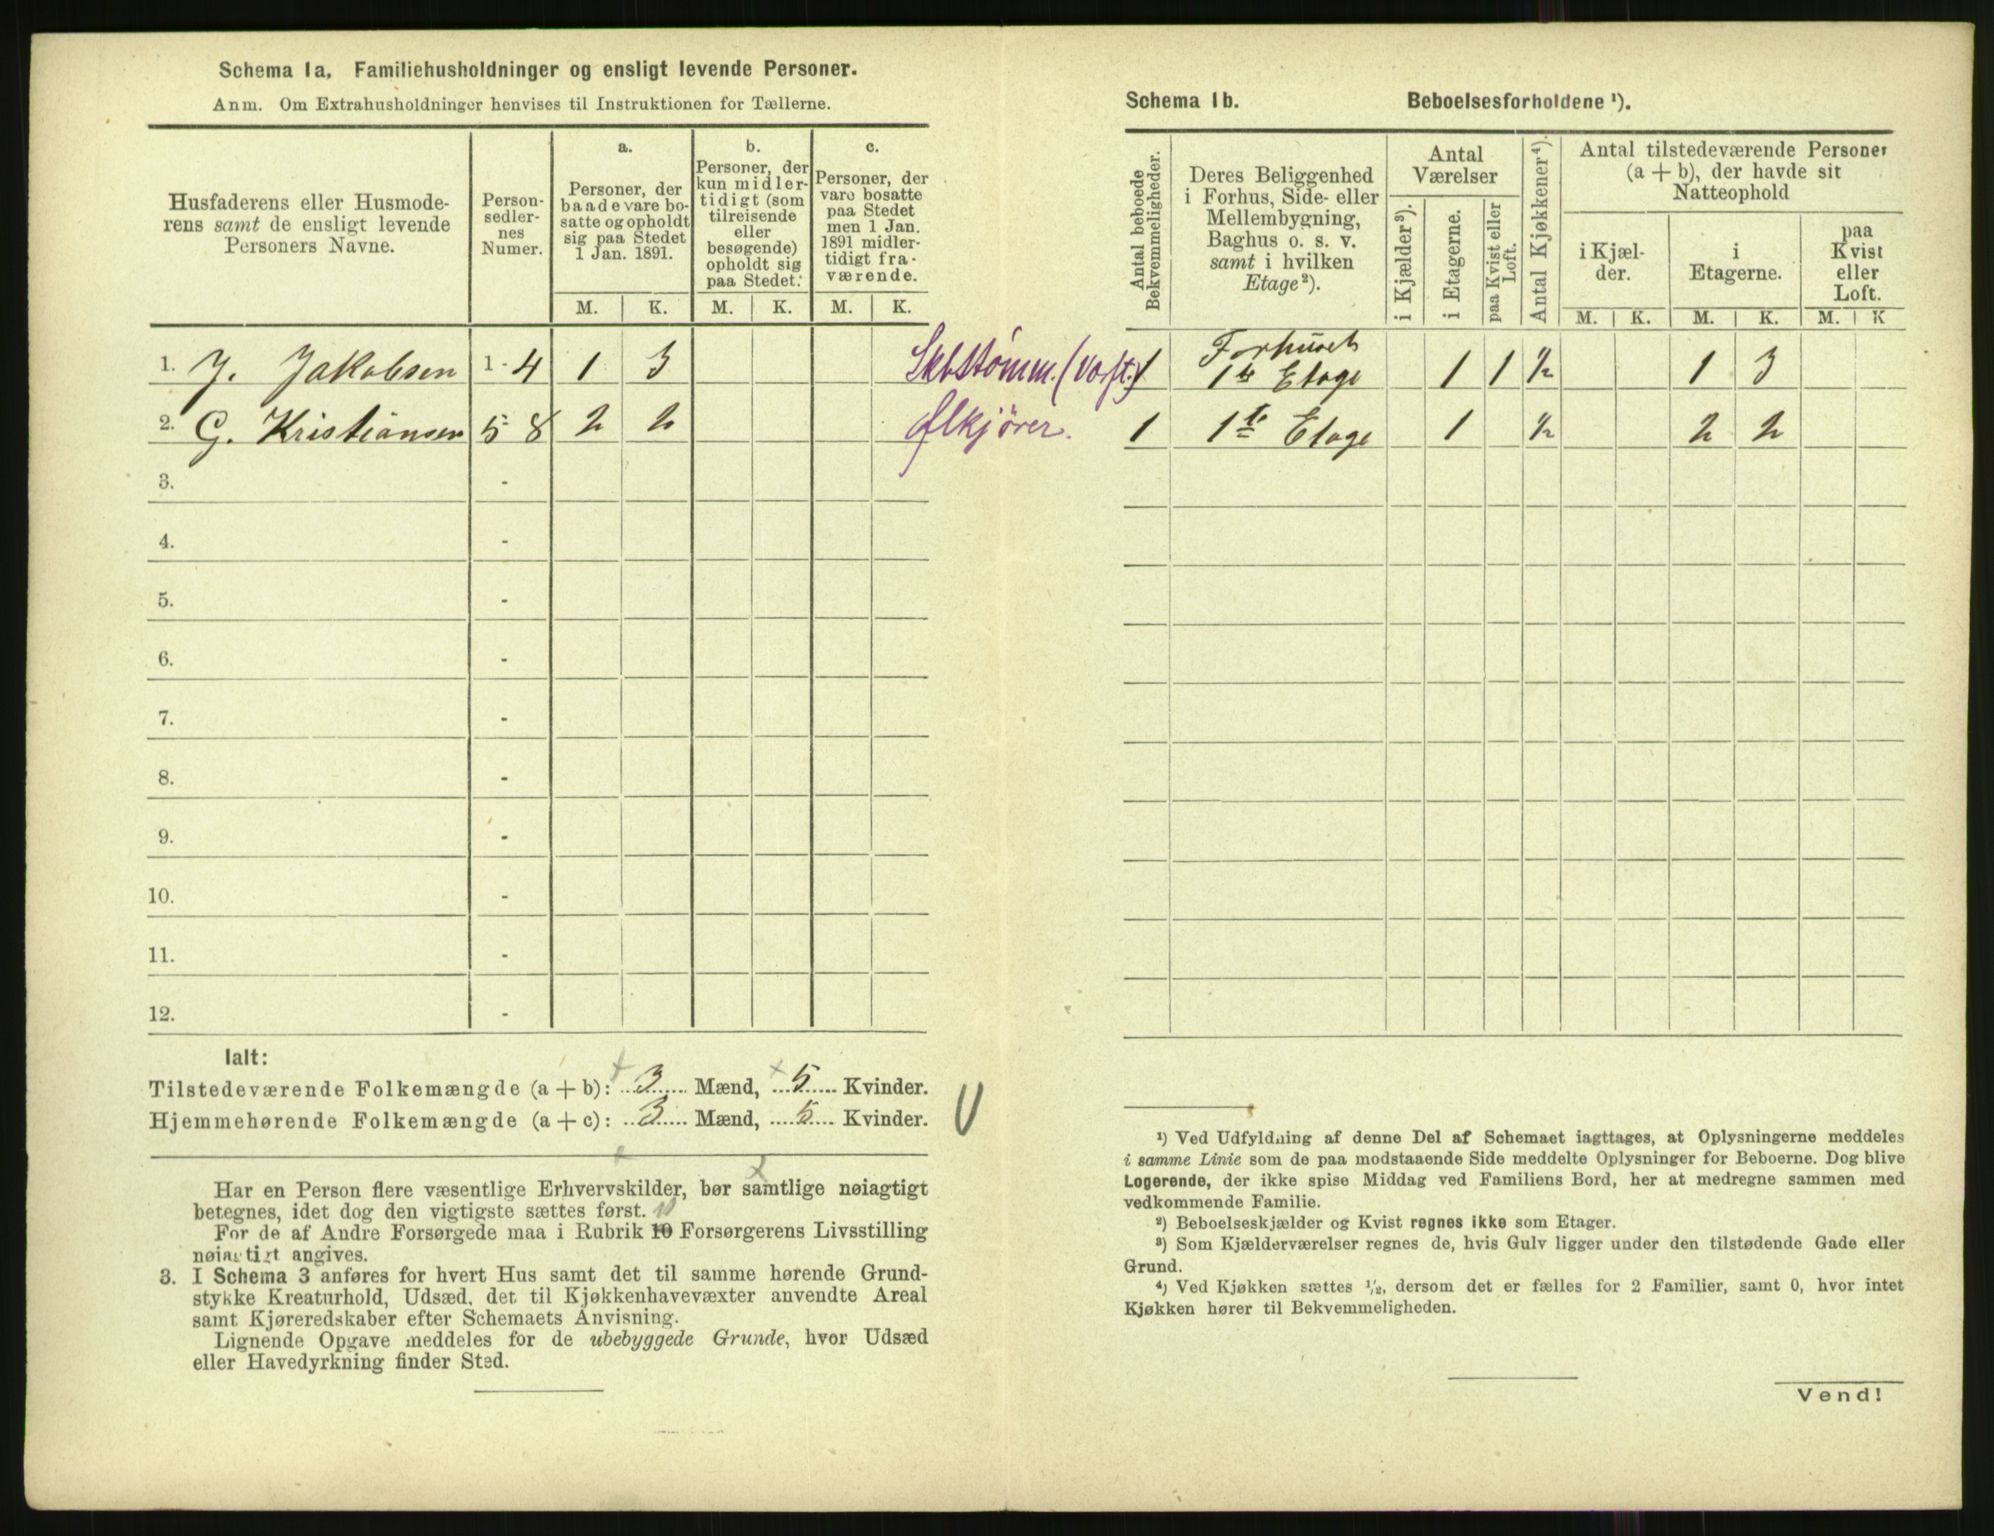 Schema 1a. Familiehusholdninger og ensligt levende Personer.
Anm. Om Extrahusholdninger henvises til Instruktionen for Tællerne.
Husfaderens eller Husmode-
rens samt de ensligt levende
Personers Navne.
Person-
sedler-
nes
Numer.
a.
Personer, der
baade vare bo-
satte og opholdt
sig paa Stedet
1 Jan. 1891.
b.
Personer, der
kun midler-
tidigt (som
tilreisende
eller
besøgende)
opholdt sig
paa Stedet.
c.
Personer, der
vare bosatte
paa Stedet
men 1 Jan.
1891 midler-
tidigt fra-
værende.
M. K. M. K. M. K.
1. J. Jakobsen 1-4 1 3 Skbstømm. (Varft.)
2. G. Kristiansen 5-8 2 2 Ølkjører.
3. -
4. -
5. -
6. -
7. -
8. -
9. -
10. -
11. -
12. -
Ialt:
Tilstedeværende Folkemængde (a + b): 3 Mænd, 5 Kvinder.
Hjemmehørende Folkemængde (a + c): 3 Mænd, 5 Kvinder.
Har en Person flere væsentlige Erhvervskilder, bør samtlige nøiagtigt
betegnes, idet dog den vigtigste sættes først.
For de af Andre Forsørgede maa i Rubrik 10 Forsørgerens Livsstilling
nøiagtigt angives.
3. I Schema 3 anføres for hvert Hus samt det til samme hørende Grund-
stykke Kreaturhold, Udsæd, det til Kjøkkenhavevæxter anvendte Areal
samt Kjøreredskaber efter Schemaets Anvisning.
Lignende Opgave meddeles for de ubebyggede Grunde, hvor Udsæd
eller Havedyrkning finder Sted.
Schema 1b. Beboelsesforholdene ¹).
Antal beboede
Bekvemmeligheder.
Deres Beliggenhed
i Forhus, Side- eller
Mellembygning,
Baghus o. s. v.
samt i hvilken
Etage²).
Antal
Værelser
i Kjælder³).
i Etagerne.
paa Kvist eller
Loft.
Antal Kjøkkener⁴).
Antal tilstedeværende Personer
(a + b), der havde sit
Natteophold
i Kjæl-
der.
i
Etagerne.
paa
Kvist
eller
Loft.
M. K. M. K. M. K
Forhuset
1 1te Etage 1 1 ½ 1 3
1 1te Etage 1 ½ 2 2
¹) Ved Udfyldning af denne Del af Schemaet iagttages, at Oplysningerne meddeles
i samme Linie som de paa modstaaende Side meddelte Oplysninger for Beboerne. Dog blive
Logerende, der ikke spise Middag ved Familiens Bord, her at medregne sammen med
vedkommende Familie.
²) Beboelseskjælder og Kvist regnes ikke som Etager.
³) Som Kjælderværelser regnes de, hvis Gulv ligger under den tilstødende Gade eller
Grund.
⁴) Ved Kjøkken sættes ½, dersom det er fælles for 2 Familier, samt 0, hvor intet
Kjøkken hører til Bekvemmeligheden.
Vend!